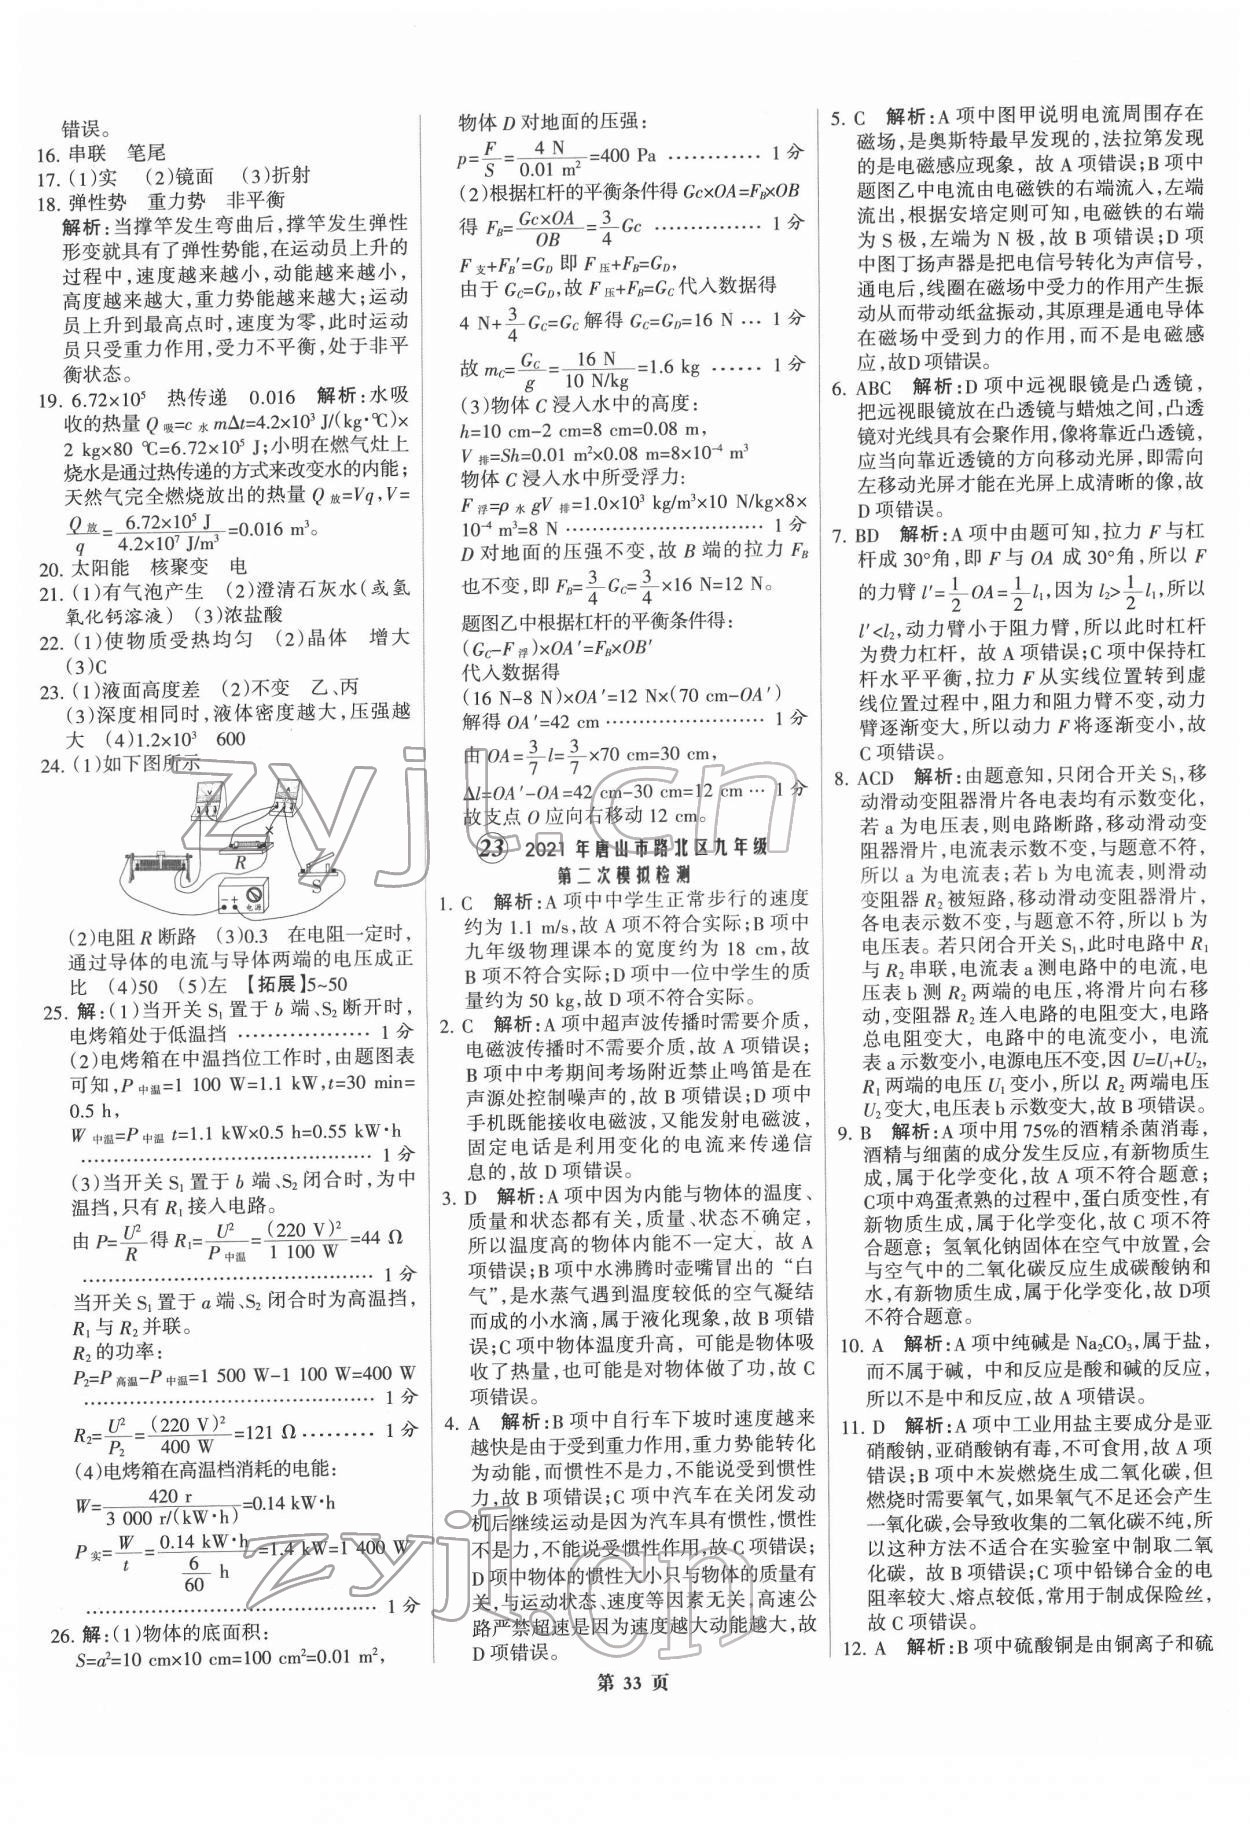 错误。
16. 串联 笔尾
17. (1)实 (2)镜面 (3)折射
18. 弹性势 重力势 非平衡
解析:当撑竿发生弯曲后,撑竿发生弹性
形变就具有了弹性势能,在运动员上升的
过程中,速度越来越小,动能越来越小,
高度越来越大,重力势能越来越大;运动
员上升到最高点时,速度为零,此时运动
员只受重力作用,受力不平衡,处于非平
衡状态。
19. 6.72×10⁵ 热传递 0.016 解析:水吸
收的热量 Q吸=c水mΔt=4.2×10³ J/(kg·℃)×
2 kg×80 ℃=6.72×10⁵ J;小明在燃气灶上
烧水是通过热传递的方式来改变水的内能;
天然气完全燃烧放出的热量 Q放=Vq,V=
Q放/q=6.72×10⁵ J/4.2×10⁷ J/m³=0.016 m³。
20. 太阳能 核聚变 电
21. (1)有气泡产生 (2)澄清石灰水(或氢
氧化钙溶液) (3)浓盐酸
22. (1)使物质受热均匀 (2)晶体 增大
(3)C
23. (1)液面高度差 (2)不变 乙、丙
(3)深度相同时,液体密度越大,压强越
大 (4)1.2×10³ 600
24. (1)如下图所示
V A
R S
电源
(2)电阻 R 断路 (3)0.3 在电阻一定时,
通过导体的电流与导体两端的电压成正
比 (4)50 (5)左 【拓展】5~50
25. 解:(1)当开关 S₁ 置于 b 端、S₂ 断开时,
电烤箱处于低温挡 ………………… 1 分
(2)电烤箱在中温挡位工作时,由题图表
可知,P中温=1 100 W=1.1 kW,t=30 min=
0.5 h,
W中温=P中温t=1.1 kW×0.5 h=0.55 kW·h
………………………………… 1 分
(3)当开关 S₁ 置于 b 端、S₂ 闭合时,为中
温挡,只有 R₁ 接入电路。
由 P=U²/R 得 R₁=U²/P中温=(220 V)²/1 100 W=44 Ω
………………………………… 1 分
当开关 S₁ 置于 a 端、S₂ 闭合时为高温挡,
R₁ 与 R₂ 并联。
R₂ 的功率:
P₂=P高温-P中温=1 500 W-1 100 W=400 W
………………………………… 1 分
R₂=U²/P₂=(220 V)²/400 W=121 Ω ……… 1 分
(4)电烤箱在高温档消耗的电能:
W=420 r/3 000 r/(kW·h)=0.14 kW·h
P实=W/t=0.14 kW·h/(6/60 h)=1.4 kW=1 400 W
………………………………… 1 分
26. 解:(1)物体的底面积:
S=a²=10 cm×10 cm=100 cm²=0.01 m²,
物体 D 对地面的压强:
p=F/S=4 N/0.01 m²=400 Pa ………… 1 分
(2)根据杠杆的平衡条件得 Gc×OA=FB×OB
得 FB=Gc×OA/OB=3/4Gc ………… 1 分
F支+FB′=GD 即 F压+FB=GD,
由于 GC=GD,故 F压+FB=GC 代入数据得
4 N+3/4GC=GC 解得 GC=GD=16 N … 1 分
故 mC=GC/g=16 N/10 N/kg=1.6 kg …… 1 分
(3)物体 C 浸入水中的高度:
h=10 cm-2 cm=8 cm=0.08 m,
V排=Sh=0.01 m²×0.08 m=8×10⁻⁴ m³
物体 C 浸入水中所受浮力:
F浮=ρ水gV排=1.0×10³ kg/m³×10 N/kg×8×
10⁻⁴ m³=8 N ……………………… 1 分
D 对地面的压强不变,故 B 端的拉力 FB
也不变,即 FB=3/4GC=3/4×16 N=12 N。
题图乙中根据杠杆的平衡条件得:
(GC-F浮)×OA′=FB×OB′
代入数据得
(16 N-8 N)×OA′=12 N×(70 cm-OA′)
解得 OA′=42 cm ………………… 1 分
由 OA=3/7l=3/7×70 cm=30 cm,
Δl=OA′-OA=42 cm-30 cm=12 cm … 1 分
故支点 O 应向右移动 12 cm。
23 2021 年唐山市路北区九年级
第二次模拟检测
1. C 解析:A 项中中学生正常步行的速度
约为 1.1 m/s,故 A 项不符合实际;B 项中
九年级物理课本的宽度约为 18 cm,故
B 项不符合实际;D 项中一位中学生的质
量约为 50 kg,故 D 项不符合实际。
2. C 解析:A 项中超声波传播时需要介质,
电磁波传播时不需要介质,故 A 项错误;
B 项中中考期间考场附近禁止鸣笛是在
声源处控制噪声的,故 B 项错误;D 项中
手机既能接收电磁波,又能发射电磁波,
固定电话是利用变化的电流来传递信
息的,故 D 项错误。
3. D 解析:A 项中因为内能与物体的温度、
质量和状态都有关,质量、状态不确定,
所以温度高的物体内能不一定大,故 A
项错误;B 项中水沸腾时壶嘴冒出的“白
气”,是水蒸气遇到温度较低的空气凝结
而成的小水滴,属于液化现象,故 B 项错
误;C 项中物体温度升高,可能是物体吸
收了热量,也可能是对物体做了功,故 C
项错误。
4. A 解析:B 项中自行车下坡时速度越来
越快是由于受到重力作用,重力势能转化
为动能,而惯性不是力,不能说受到惯性
作用,故 B 项错误;C 项中汽车在关闭发动
机后继续运动是因为汽车具有惯性,惯性
不是力,不能说受惯性作用,故 C 项错误;
D 项中物体的惯性大小只与物体的质量有
关,与运动状态、速度等因素无关,高速公
路严禁超速是因为速度越大动能越大,故
D 项错误。
5. C 解析:A 项中图甲说明电流周围存在
磁场,是奥斯特最早发现的,法拉第发现
的是电磁感应现象,故 A 项错误;B 项中
题图乙中电流由电磁铁的右端流入,左端
流出,根据安培定则可知,电磁铁的右端
为 S 极,左端为 N 极,故 B 项错误;D 项
中图丁扬声器是把电信号转化为声信号,
通电后,线圈在磁场中受力的作用产生振
动从而带动纸盆振动,其原理是通电导体
在磁场中受到力的作用,而不是电磁感
应,故D 项错误。
6. ABC 解析:D 项中远视眼镜是凸透镜,
把远视眼镜放在凸透镜与蜡烛之间,凸透
镜对光线具有会聚作用,像将靠近凸透镜,
应当向靠近透镜的方向移动光屏,即需向
左移动光屏才能在光屏上成清晰的像,故
D 项错误。
7. BD 解析:A 项中由题可知,拉力 F 与杠
杆成 30°角,即 F 与 OA 成 30°角,所以 F
的力臂 l′=1/2OA=1/2l₁,因为 l₂>1/2l₁,所以
l′<l₂,动力臂小于阻力臂,所以此时杠杆
为费力杠杆,故 A 项错误;C 项中保持杠
杆水平平衡,拉力 F 从实线位置转到虚
线位置过程中,阻力和阻力臂不变,动力
臂逐渐变大,所以动力 F 将逐渐变小,故
C 项错误。
8. ACD 解析:由题意知,只闭合开关 S₁,移
动滑动变阻器滑片各电表均有示数变化,
若 a 为电压表,则电路断路,移动滑动变
阻器滑片,电流表示数不变,与题意不符,
所以 a 为电流表;若 b 为电流表,则滑动
变阻器 R₂ 被短路,移动滑动变阻器滑片,
各电表示数不变,与题意不符,所以 b 为
电压表。若只闭合开关 S₁,此时电路中 R₁
与 R₂ 串联,电流表 a 测电路中的电流,电
压表 b 测 R₂ 两端的电压,将滑片向右移
动,变阻器 R₂ 连入电路的电阻变大,电路
总电阻变大,电路中的电流变小,电流
表 a 示数变小,电源电压不变,因 U=U₁+U₂,
R₁ 两端的电压 U₁ 变小,所以 R₂ 两端电压
U₂ 变大,电压表 b 示数变大,故 B 项错误。
9. B 解析:A 项中用 75%的酒精杀菌消毒,
酒精与细菌的成分发生反应,有新物质生
成,属于化学变化,故 A 项不符合题意;
C项中鸡蛋煮熟的过程中,蛋白质变性,有
新物质生成,属于化学变化,故 C 项不符
合题意;氢氧化钠固体在空气中放置,会
与空气中的二氧化碳反应生成碳酸钠和
水,有新物质生成,属于化学变化,故 D项
不符合题意。
10. A 解析:A 项中纯碱是 Na₂CO₃,属于盐,
而不属于碱,中和反应是酸和碱的反应,
所以不是中和反应,故 A 项错误。
11. D 解析:A 项中工业用盐主要成分是亚
硝酸钠,亚硝酸钠有毒,不可食用,故 A 项
错误;B 项中木炭燃烧生成二氧化碳,但
燃烧时需要氧气,如果氧气不足还会产生
一氧化碳,会导致收集的二氧化碳不纯,所
以这种方法不适合在实验室中制取二氧
化碳,故 B 项错误;C 项中铅锑合金的电
阻率较大、熔点较低,常用于制成保险丝,
故 C 项错误。
12. A 解析:B 项中硫酸铜是由铜离子和硫
第 33 页
zyjl.cn
zyjl.cn